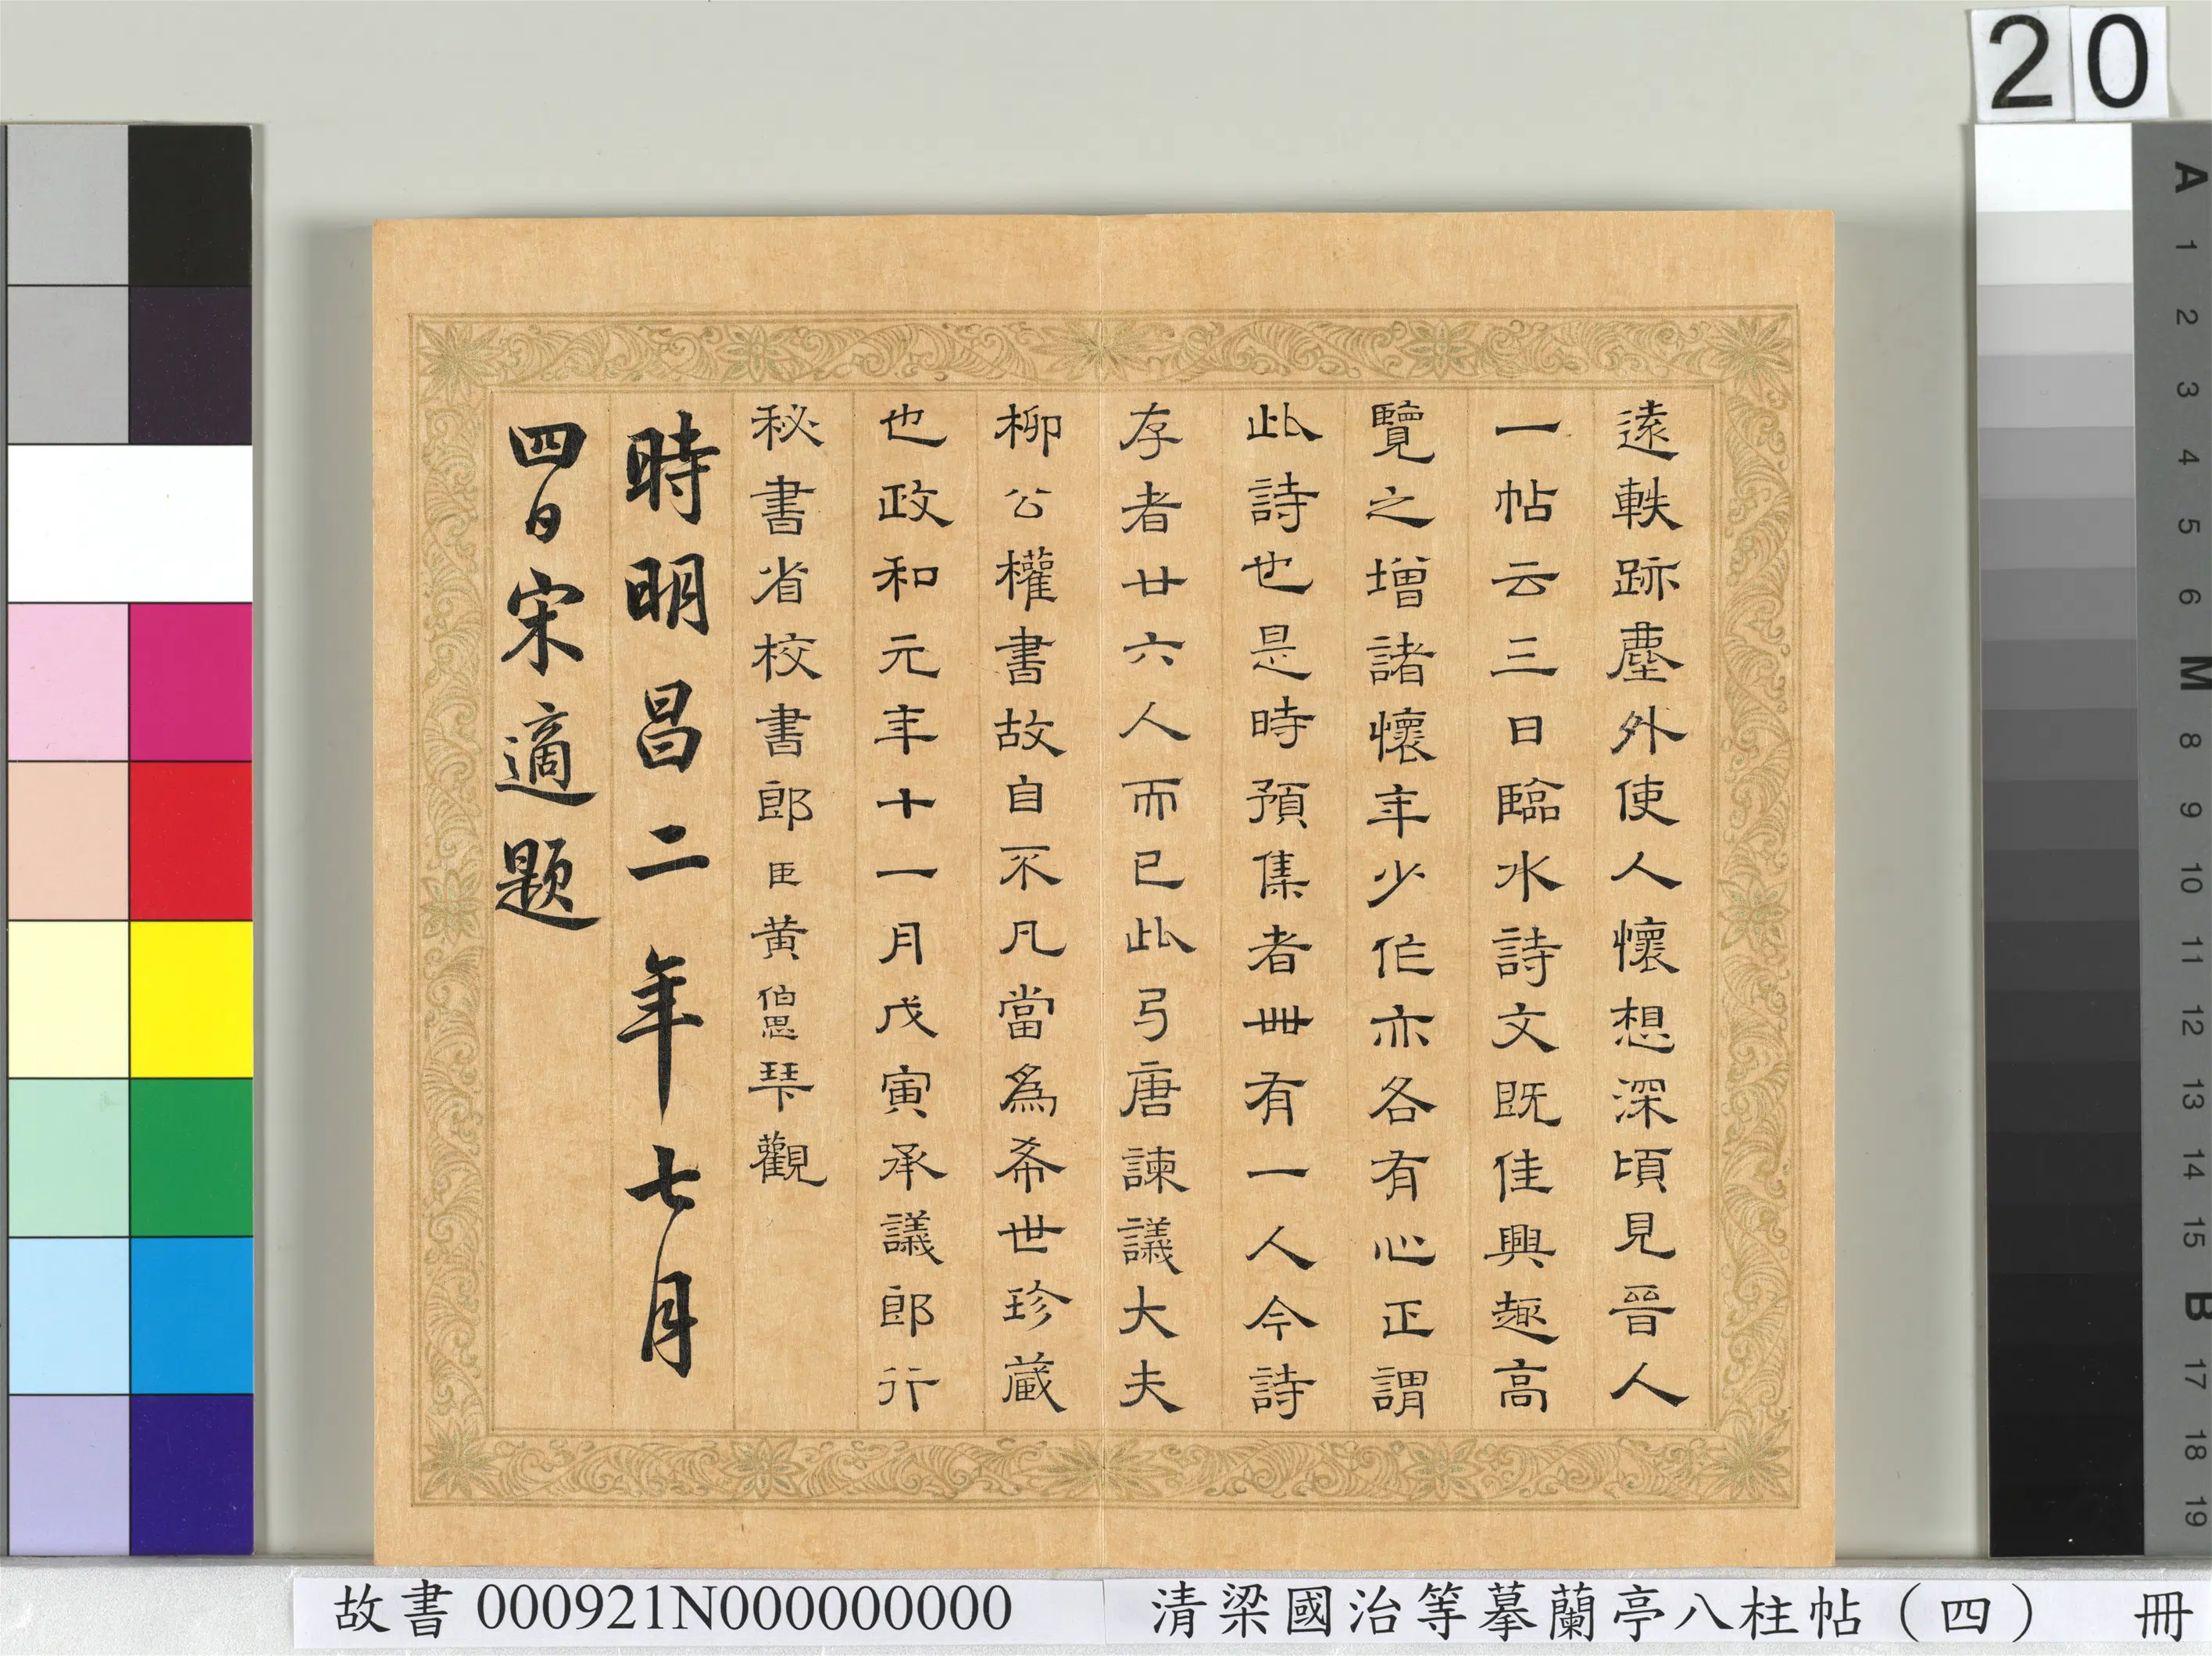 遠軼跡塵外使人懷想深頃見晉人
一帖云三日臨水詩文既佳興趣高
覽之增諸懷年少作亦各有心正謂
此詩也是時預集者卌有一人今詩
存者廿六人而已此弓唐諫議大夫
柳公權書故自不凡當為希世珍蔵
也政和元年十一月戊寅承議郎行
秘書省校書郎臣黄伯思琴觀
時明昌二年七月
四日宋適題
20
A 1 2 3 4 5 6 M 8 9 10 11 12 13 14 15 B 17 18 19
故書 000921N000000000 清梁國治等摹蘭亭八柱帖（四） 冊